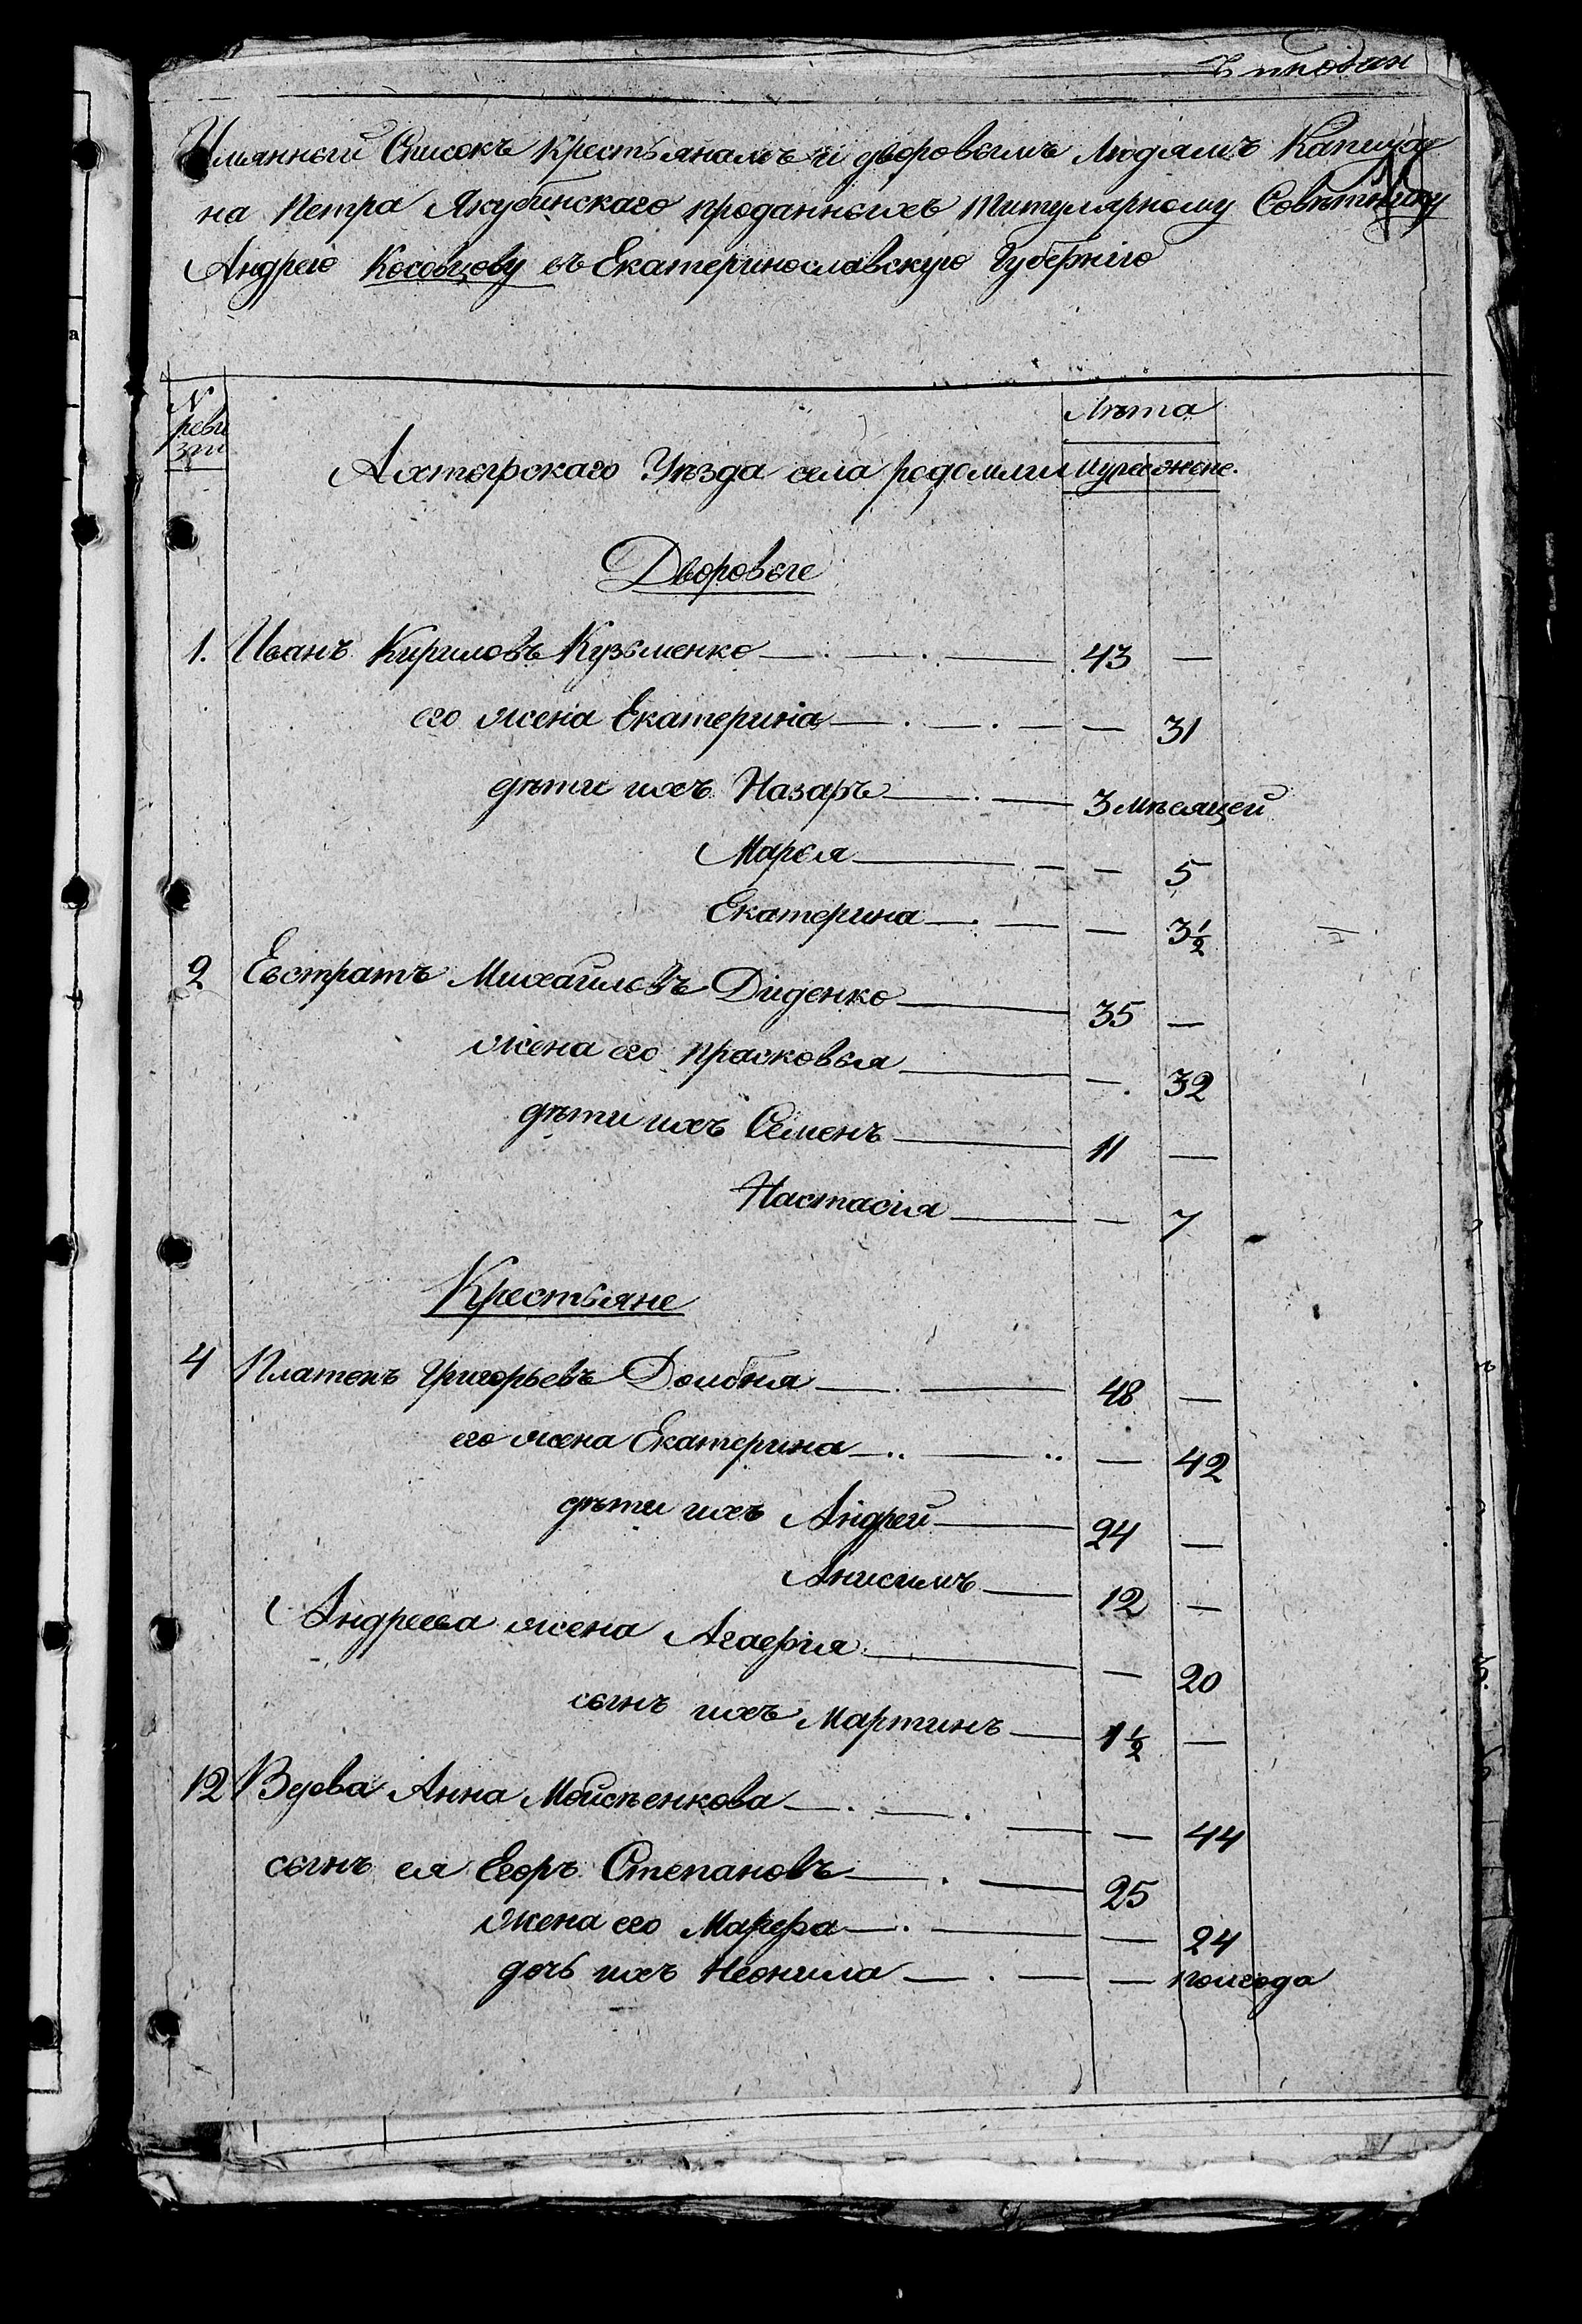 Имянный Списокъ крестьянамъ и дворовымъ людямъ Капита
на Петра Якубинскаго проданныхъ Титулярному Совѣтнику
Андрею Косовцову въ Екатеринославскую Губернію
N реви зіи
Лѣта
Ахтырскаго Уѣзда села родомли
мужес женс.
Дворовые
1. Иванъ Кириловъ Кузьменко 43 —
его жена Екатерина — 31
дѣти ихъ Назаръ 3 мѣсяцей
Марья — 5
Екатерина — 3½
2 Евстратъ Михайловъ Диденко 35 —
жена его Прасковья — 32
дѣти ихъ Семенъ 11 —
Настасія — 7
Крестьяне
4 Платонъ Григорьевъ Долбня 48 —
его жена Екатерина — 42
дѣти ихъ Андрей 24 —
Анисимъ 12 —
Андреева жена Агафія — 20
сынъ ихъ Мартинъ 1½ —
12 Вдова Анна Мойсѣенкова — 44
сынъ ея Егоръ Степановъ 25
жена его Марфа — 24
дочь ихъ Неонила — полгода